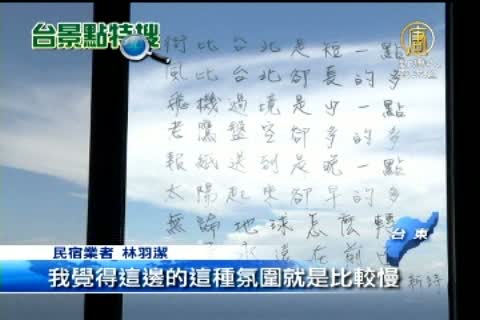 台景點特搜
街比台北是短一點
風比台北卻長的多
飛機過境是少一點
老鷹盤空卻多的多
報紙送到是晚一點
太陽起來卻早的多
無論地球怎麼轉
永遠在前
新詩
台東
民宿業者 林羽潔
我覺得這邊的這種氛圍就是比較慢